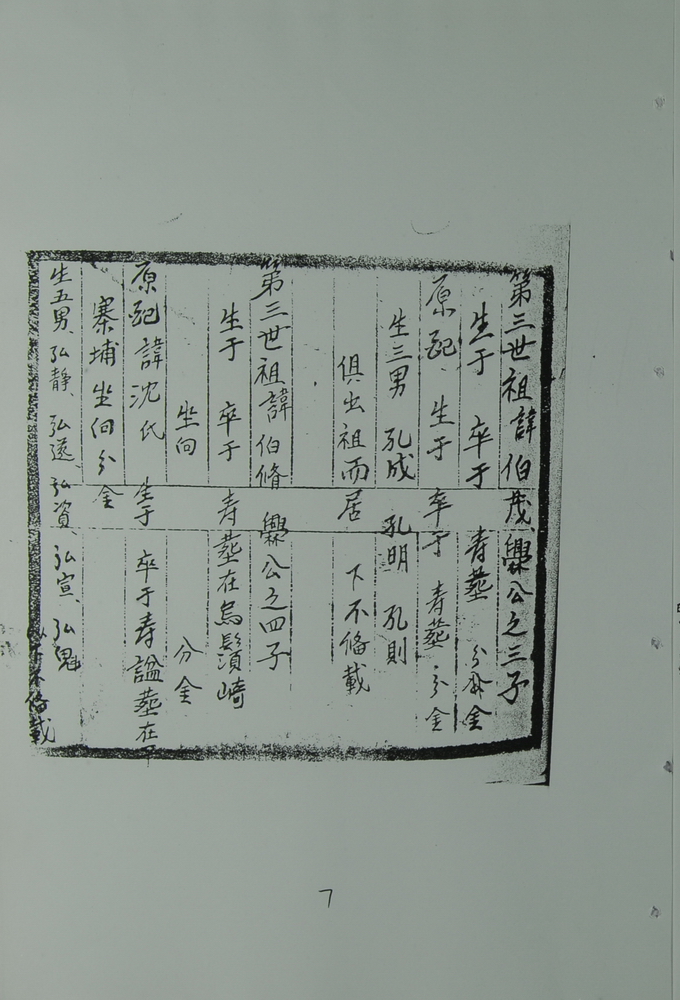 第三世祖諱伯茂、爂公之三子
生于 卒于 寿塟 分金
原配、生于 卒于 寿塟、分金
生三男 孔成 孔明 孔則
俱出祖而居 下不俻載
第三世祖諱伯脩 爂公之四子
生于 卒于 寿塟在烏鬚崎
坐向 分金
原配諱沈氏 生于 卒于寿諡塟在
寨埔坐向分金
生五男、弘静、弘遂、弘資、弘宣、弘魁 以下不俻載
7